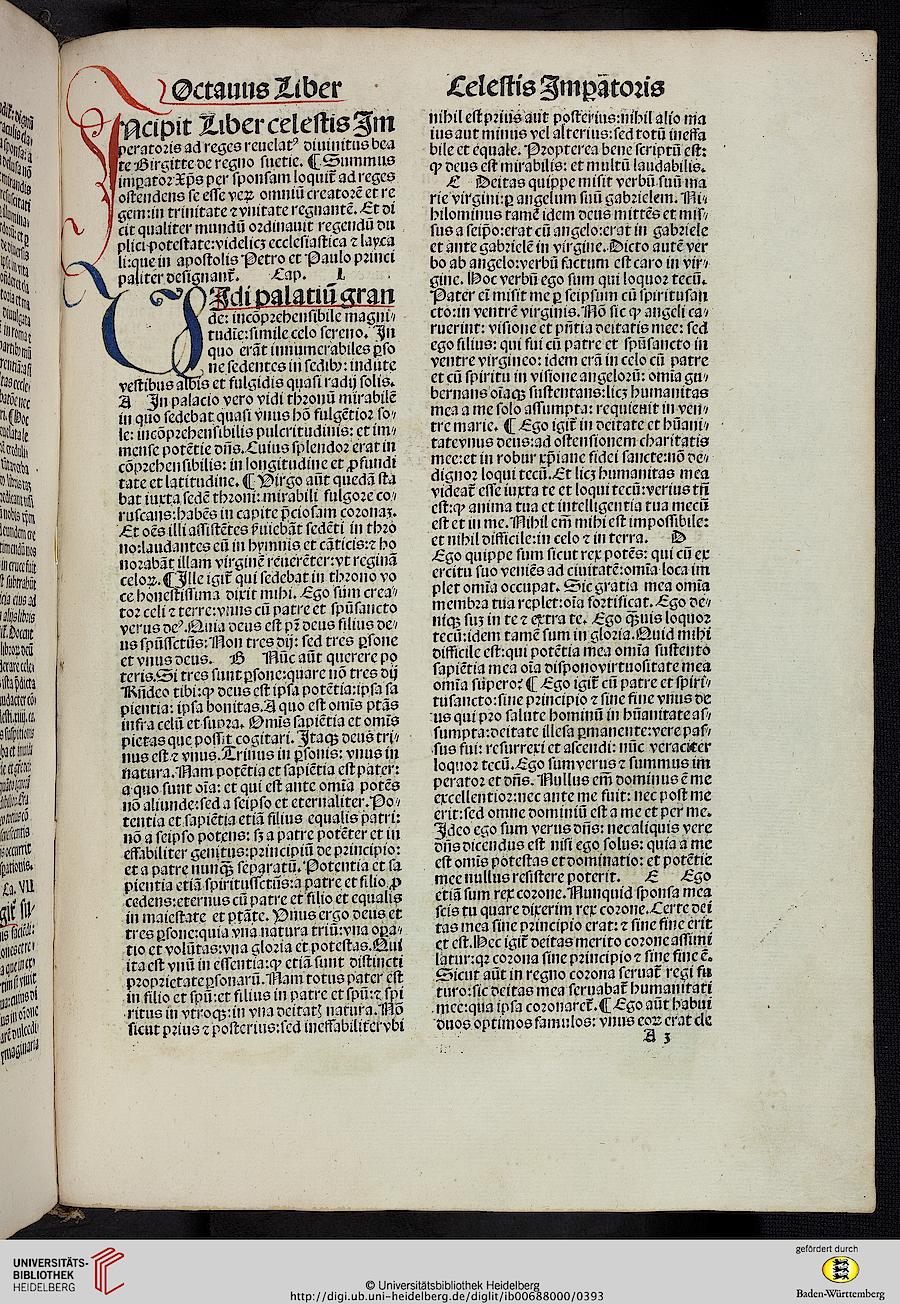 Octauus Liber
Celestis Impatoris
INcipit Liber celestis Im
peratoris ad reges reuelatꝰ diuinitus bea
te Birgitte de regno suetie. ¶ Summus
impator Xp̄s per sponsam loquit̄ ad reges
ostendens se esse verꝝ omniū creatorē et re
gem: in trinitate ⁊ vnitate regnantē. Et di
cit qualiter mundū ordinauit regendū du
plici potestate: videlicꝫ ecclesiastica ⁊ layca
li: que in apostolis Petro et Paulo princi
paliter designant̄. Cap. I.
VIdi palatiū gran
de: incōprehensibile magni⸗
tudie: simile celo sereno. In
quo erāt innumerabiles ꝑso
ne sedentes in sedibꝰ: indute
vestibus albis et fulgidis quasi radij solis.
A In palacio vero vidi thronū mirabilē
in quo sedebat quasi vnus hō fulgētior so⸗
le: incōprehensibilis pulcritudinis: et im⸗
mense potētie dn̄s. Cuius splendor erat in
cōprehensibilis: in longitudine et ꝓfundi
tate et latitudine. ¶ Virgo aūt quedā sta
bat iuxta sedē throni: mirabili fulgore co⸗
ruscans: habēs in capite p̄ciosam coronaꝫ.
Et oēs illi assistētes ẜuiebāt sedēti in thro
no: laudantes eū in hymnis et cāticis: ⁊ ho
norabāt illam virginē reuerēter: vt reginā
celoꝝ. ¶ Ille igit̄ qui sedebat in throno vo
ce honestissima dixit mihi. Ego sum crea⸗
tor celi ⁊ terre: vnus cū patre et spūsancto
verus deꝰ. Quia deus est pr̄ deus filius de⸗
us spūssctūs: Non tres dij: sed tres ꝑsone
et vnus deus. B Nūc aūt querere po
teris. Si tres sunt ꝑsone: quare nō tres dij
Rn̄deo tibi: ꝙ deus est ipsa potētia: ipsa sa
pientia: ipsa bonitas. A quo est omīs ptās
infra celū et supra. Omīs sapiētia et omīs
pietas que possit cogitari. Itaqꝫ deus tri⸗
nus est ⁊ vnus. Trinus in ꝑsonis: vnus in
natura. Nam potētia et sapiētia est pater:
a quo sunt oīa: et qui est ante omīa potēs
nō aliunde: sed a seipso et eternaliter. Po⸗
tentia et sapiētia etiā filius equalis patri:
nō a seipso potens: sꝫ a patre potēter et in
effabiliter genitus: principiū de principio:
et a patre nunqꝫ separatū. Potentia et sa
pientia etiā spiritussctūs: a patre et filio ꝓ
cedens: eternus cū patre et filio et equalis
in maiestate et ptāte. Vnus ergo deus et
tres ꝑsone: quia vna natura triū: vna oꝑa⸗
tio et volūtas: vna gloria et potestas. Qui
ita est vnū in essentia: ꝙ etiā sunt distincti
proprietate ꝑsonarū. Nam totus pater est
in filio et spū: et filius in patre et spū: ⁊ spi
ritus in vtroqꝫ: in vna deitatꝭ natura. Nō
sicut prius ⁊ posterius: sed ineffabiliter vbi
nihil est prius aut posterius: nihil alio ma
ius aut minus vel alterius: sed totū ineffa
bile et equale. Propterea bene scriptū est:
ꝙ deus est mirabilis: et multū laudabilis.
C Deitas quippe misit verbū suū ma
rie virgini: ꝑ angelum suū gabrielem. Ni⸗
hilominus tamē idem deus mittēs et mis⸗
sus a seip̄o: erat cū angelo: erat in gabriele
et ante gabrielē in virgine. Dicto autē ver
bo ab angelo: verbū factum est caro in vir⸗
gine. Hoc verbū ego sum qui loquor tecū.
Pater eī misit me ꝑ seipsum cū spiritusan
cto: in ventrē virginis. Nō sic ꝙ angeli ca⸗
ruerint: visione et pn̄tia deitatis mee: sed
ego filius: qui fui cū patre et spūsancto in
ventre virgineo: idem erā in celo cū patre
et cū spiritu in visione angelorū: omīa gu⸗
bernans oīaqꝫ sustentans: licꝫ humanitas
mea a me solo assumpta: requieuit in ven⸗
tre marie. ¶ Ego igit̄ in deitate et hūani⸗
tate vnus deus: ad ostensionem charitatis
mee: et in robur xp̄iane fidei sancte: nō de⸗
dignor loqui tecū. Et licꝫ humanitas mea
videat̄ esse iuxta te et loqui tecū: verius tn̄
est: ꝙ anima tua et intelligentia tua mecū
est et in me. Nihil em̄ mihi est impossibile:
et nihil difficile: in celo ⁊ in terra. D
Ego quippe sum sicut rex potēs: qui cū ex
ercitu suo veniēs ad ciuitatē: omīa loca im
plet omīa occupat. Sic gratia mea omīa
membra tua replet: oīa fortificat. Ego de⸗
niqꝫ suꝫ in te ⁊ extra te. Ego q̄uis loquor
tecū: idem tamē sum in gloria. Quid mihi
difficile est: qui potētia mea omīa sustento
sapiētia mea oīa dispono virtuositate mea
omīa supero? ¶ Ego igit̄ cū patre et spiri⸗
tusancto: sine principio ⁊ sine fine vnus de
us qui pro salute hominū in hūanitate as⸗
sumpta: deitate illesa ꝑmanente: vere pas⸗
sus fui: resurrexi et ascendi: nūc veraciter
loquor tecū. Ego sum verus ⁊ summus im
perator et dn̄s. Nullus em̄ dominus ē me
excellentior: nec ante me fuit: nec post me
erit: sed omne dominiū est a me et per me.
Ideo ego sum verus dn̄s: nec aliquis vere
dn̄s dicendus est nisi ego solus: quia a me
est omīs potestas et dominatio: et potētie
mee nullus resistere poterit. E Ego
etiā sum rex corone. Nunquid sponsa mea
scis tu quare dixerim rex corone. Certe dei
tas mea sine principio erat: ⁊ sine fine erit
et est. Hec igit̄ deitas merito corone assimi
latur: qꝛ corona sine principio ⁊ sine fine ē.
Sicut aūt in regno corona seruat̄ regi fu
turo: sic deitas mea seruabat̄ humanitati
mee: qua ipsa coronaret̄. ¶ Ego aūt habui
duos optimos famulos: vnus eoꝝ erat de
A 3
UNIVERSITÄTS-
BIBLIOTHEK
HEIDELBERG
© Universitätsbibliothek Heidelberg
http://digi.ub.uni-heidelberg.de/diglit/ib00688000/0393
gefördert durch
Baden-Württemberg